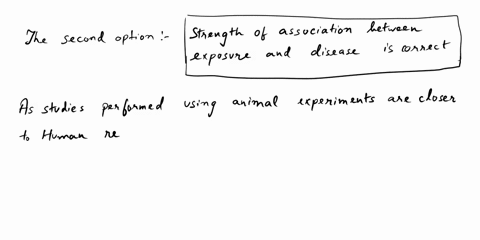 The second option :-
Strength of association between
exposure and disease is correct
As studies performed using animal experiments are closer
to Human re